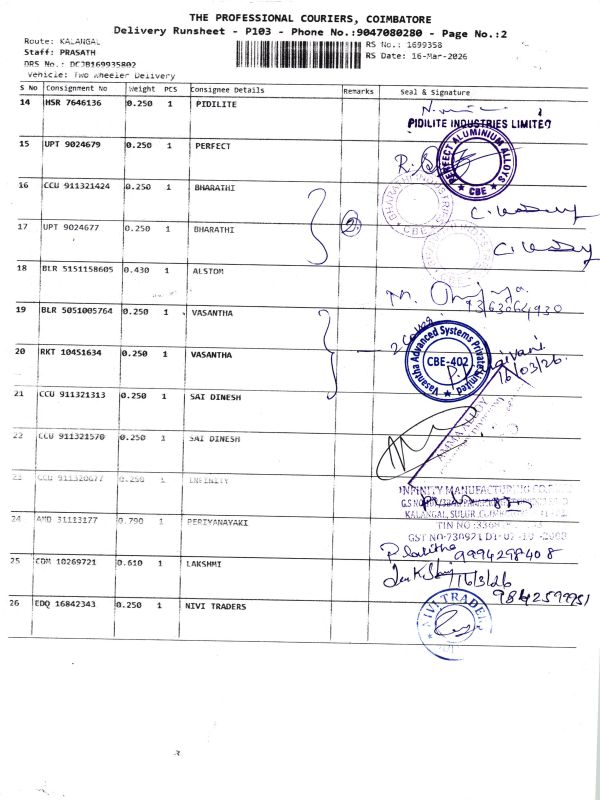 THE PROFESSIONAL COURIERS, COIMBATORE
Delivery Runsheet - P103 - Phone No.:9047080280 - Page No.:2
Route: KALANGAL
RS No.: 1699358
Staff: PRASATH
RS Date: 16-Mar-2026
DRS No.: DCJB169935802
Vehicle: Two Wheeler Delivery
S No Consignment No Weight PCS Consignee Details Remarks Seal & Signature
14 HSR 7646136 0.250 1 PIDILITE
PIDILITE INDUSTRIES LIMITED
15 UPT 9024679 0.250 1 PERFECT
PERFECT ALUMINIUM ALLOYS CBE
16 CCU 911321424 0.250 1 BHARATHI
2
CBE
17 UPT 9024677 0.250 1 BHARATHI
18 BLR 5151158605 0.430 1 ALSTOM
9363064930
19 BLR 5051005764 0.250 1 VASANTHA
Vasantha Advanced Systems Private Limited
CBE-402
16/03/26.
20 RKT 10451634 0.250 1 VASANTHA
21 CCU 911321313 0.250 1 SAI DINESH
22 CCU 911321570 0.250 1 SAI DINESH
23 CCU 911320677 0.250 1 INFINITY
INFINITY MANUFACTURING
KALANGAL, SULUR
TIN NO
24 AMD 31113177 0.790 1 PERIYANAYAKI
P. Lalitha 9994298408
25 CDM 10269721 0.610 1 LAKSHMI
16/3/26
26 EDQ 16842343 0.250 1 NIVI TRADERS
NIVI TRADERS